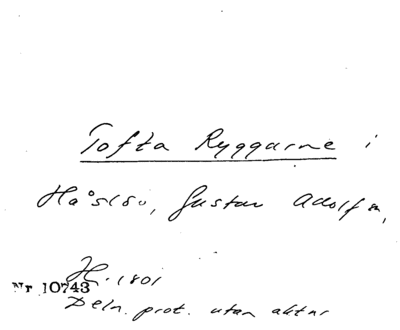 Tofta Ryggarne i
Håslöv, Gustav Adolf sn,
H. 1801
Nr 10743
Deln. prot. utan aktnr